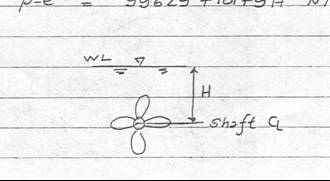 p-e = 99629 + 10179H N
WL
H
Shaft CL